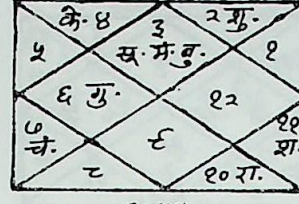 के. ४
३
सू. मं. बु.
२ शु.
५
१
६ गु.
१२
७
चं.
९
११
श.
८
१० रा.